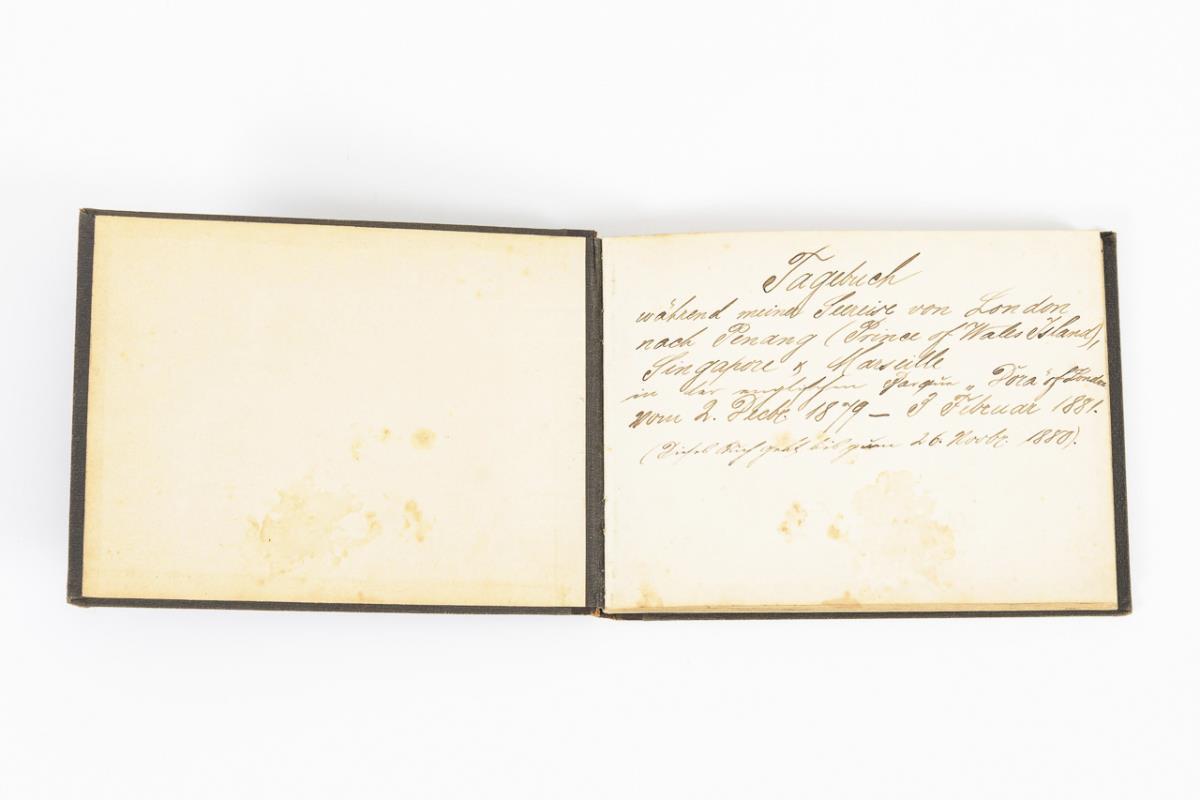 Tagebuch
während meiner Seereise von London
nach Penang (Prince of Wales Island),
Singapore & Marseille
in der englischen Barque „Dora" of London
vom 2. Decbr. 1879 – 3 Februar 1881.
(Dieses Buch geht bis zum 26. Novbr. 1880).